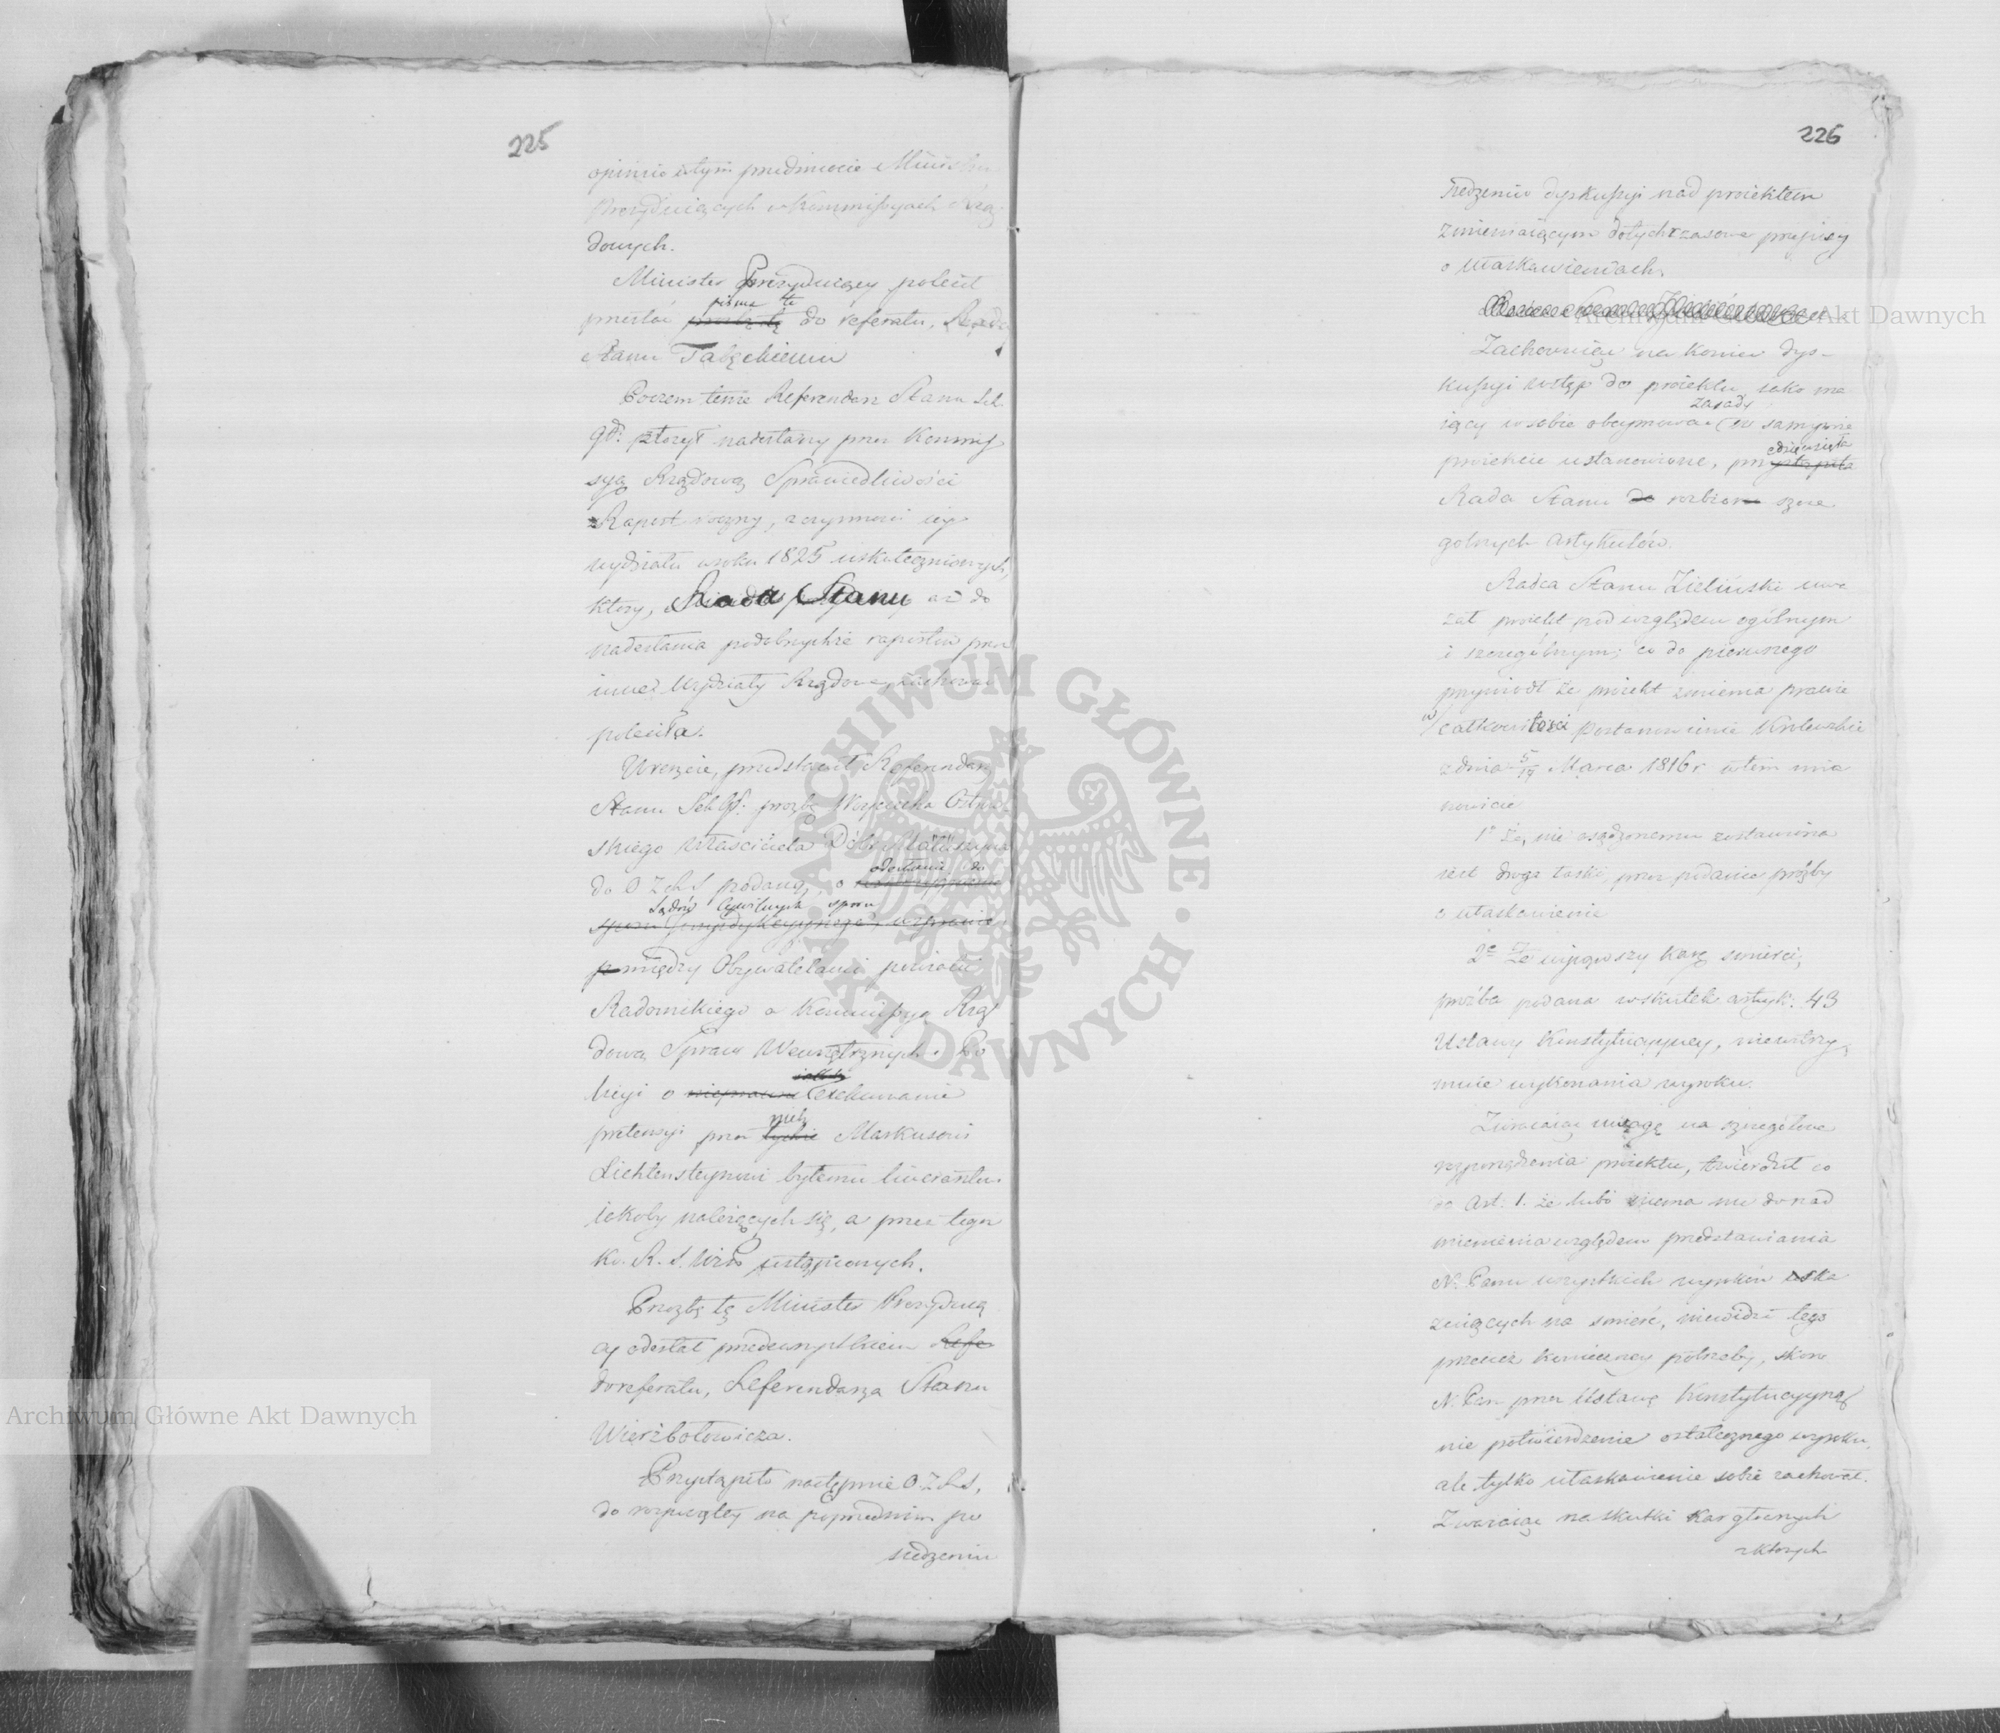 225
opinio w tym przedmiocie Ministrów
Prezyduiących w Kommissyach Rzą
dowych.
Minister Prezyduiący polecił
przesłać pisma te do referatu, Radcy
Stanu Faleńskiemu
Poczem tenże Referendarz Stanu Sek.
gł: złożył nadesłany przez Kommis
syą Rządową Sprawiedliwości
Raport roczny, z czynności iey
wydziału w roku 1825 uskutecznionych,
który, Rada Stanu aż do
nadesłania podobnychże raportów przez
inne Wydziały Rządowe, zachować
poleciła.
Wreszcie, przedstawił Referendarz
Stanu Sek Gł. prozbę Woyciecha
skiego Właściciela Dóbr
do O Z R S podaną, o odesłanie do
Sądów Cywilnych sporu
między Obywatelami powiatu
Radomskiego a Kommissyą Rzą
dową Spraw Wewnętrznych i Po
licyi o exekwowanie
pretensyi przez nich Markusowi
Lichtensteynowi byłemu liwerantowi
iakoby należących się, a przez tegoż
K. R. S. W. i P. ustąpionych.
Prozbę tę Minister Prezyduią
cy odesłał przedewszystkiem
do referatu, Referendarza Stanu
Wierzbołowicza.
Przystąpiło następnie O. Z. R. S.
do rozpoczętey na poprzedniem po
siedzeniu
226
siedzeniu dyskussyi nad proiektem
zmieniaiącym dotychczasowe przepisy
o ułaskawieniach.
Zachowuiąc na koniec dys-
kussyi wstęp do proiektu, iako ma
iący w sobie obeymować zasady w samymże
proiekcie ustanowione,
Rada Stanu rozbiór szcze
gólnych artykułów.
Radca Stanu Zieliński uwa
żał proiekt pod względem ogólnym
i szczególnym; co do pierwszego
przywiódł że proiekt zmienia prawie
w całkowitości Postanowienie Królewskie
z dnia 5/17 Marca 1816 r. w tem mia
nowicie
1º Że, nie osądzonemu zostawiona
iest droga łaski, przez podanie prośby
o ułaskawienie
2º Że wyiąwszy karę śmierci,
proźba podana w skutek artyk: 43
Ustawy Konstytucyyney, niewstrzy
muie wykonania wyroku.
Zwracaiąc uwagę na szczegółowe
rozporządzenia proiektu, twierdził co
do Art: 1. że lubo niema nic do nad
mienienia względem przedstawiania
N. Panu wszystkich wyroków ska
zuiących na śmierć, niewidzi tego
przecież konieczney potrzeby, skoro
N. Pan przez Ustawę Konstytucyyną
nie potwierdzenie ostatecznego wyroku,
ale tylko ułaskawienie sobie zachował.
Zważaiąc na skutki kar głównych
z których
Archiwum Główne Akt Dawnych
Archiwum Główne Akt Dawnych
ARCHIWUM GŁÓWNE AKT DAWNYCH